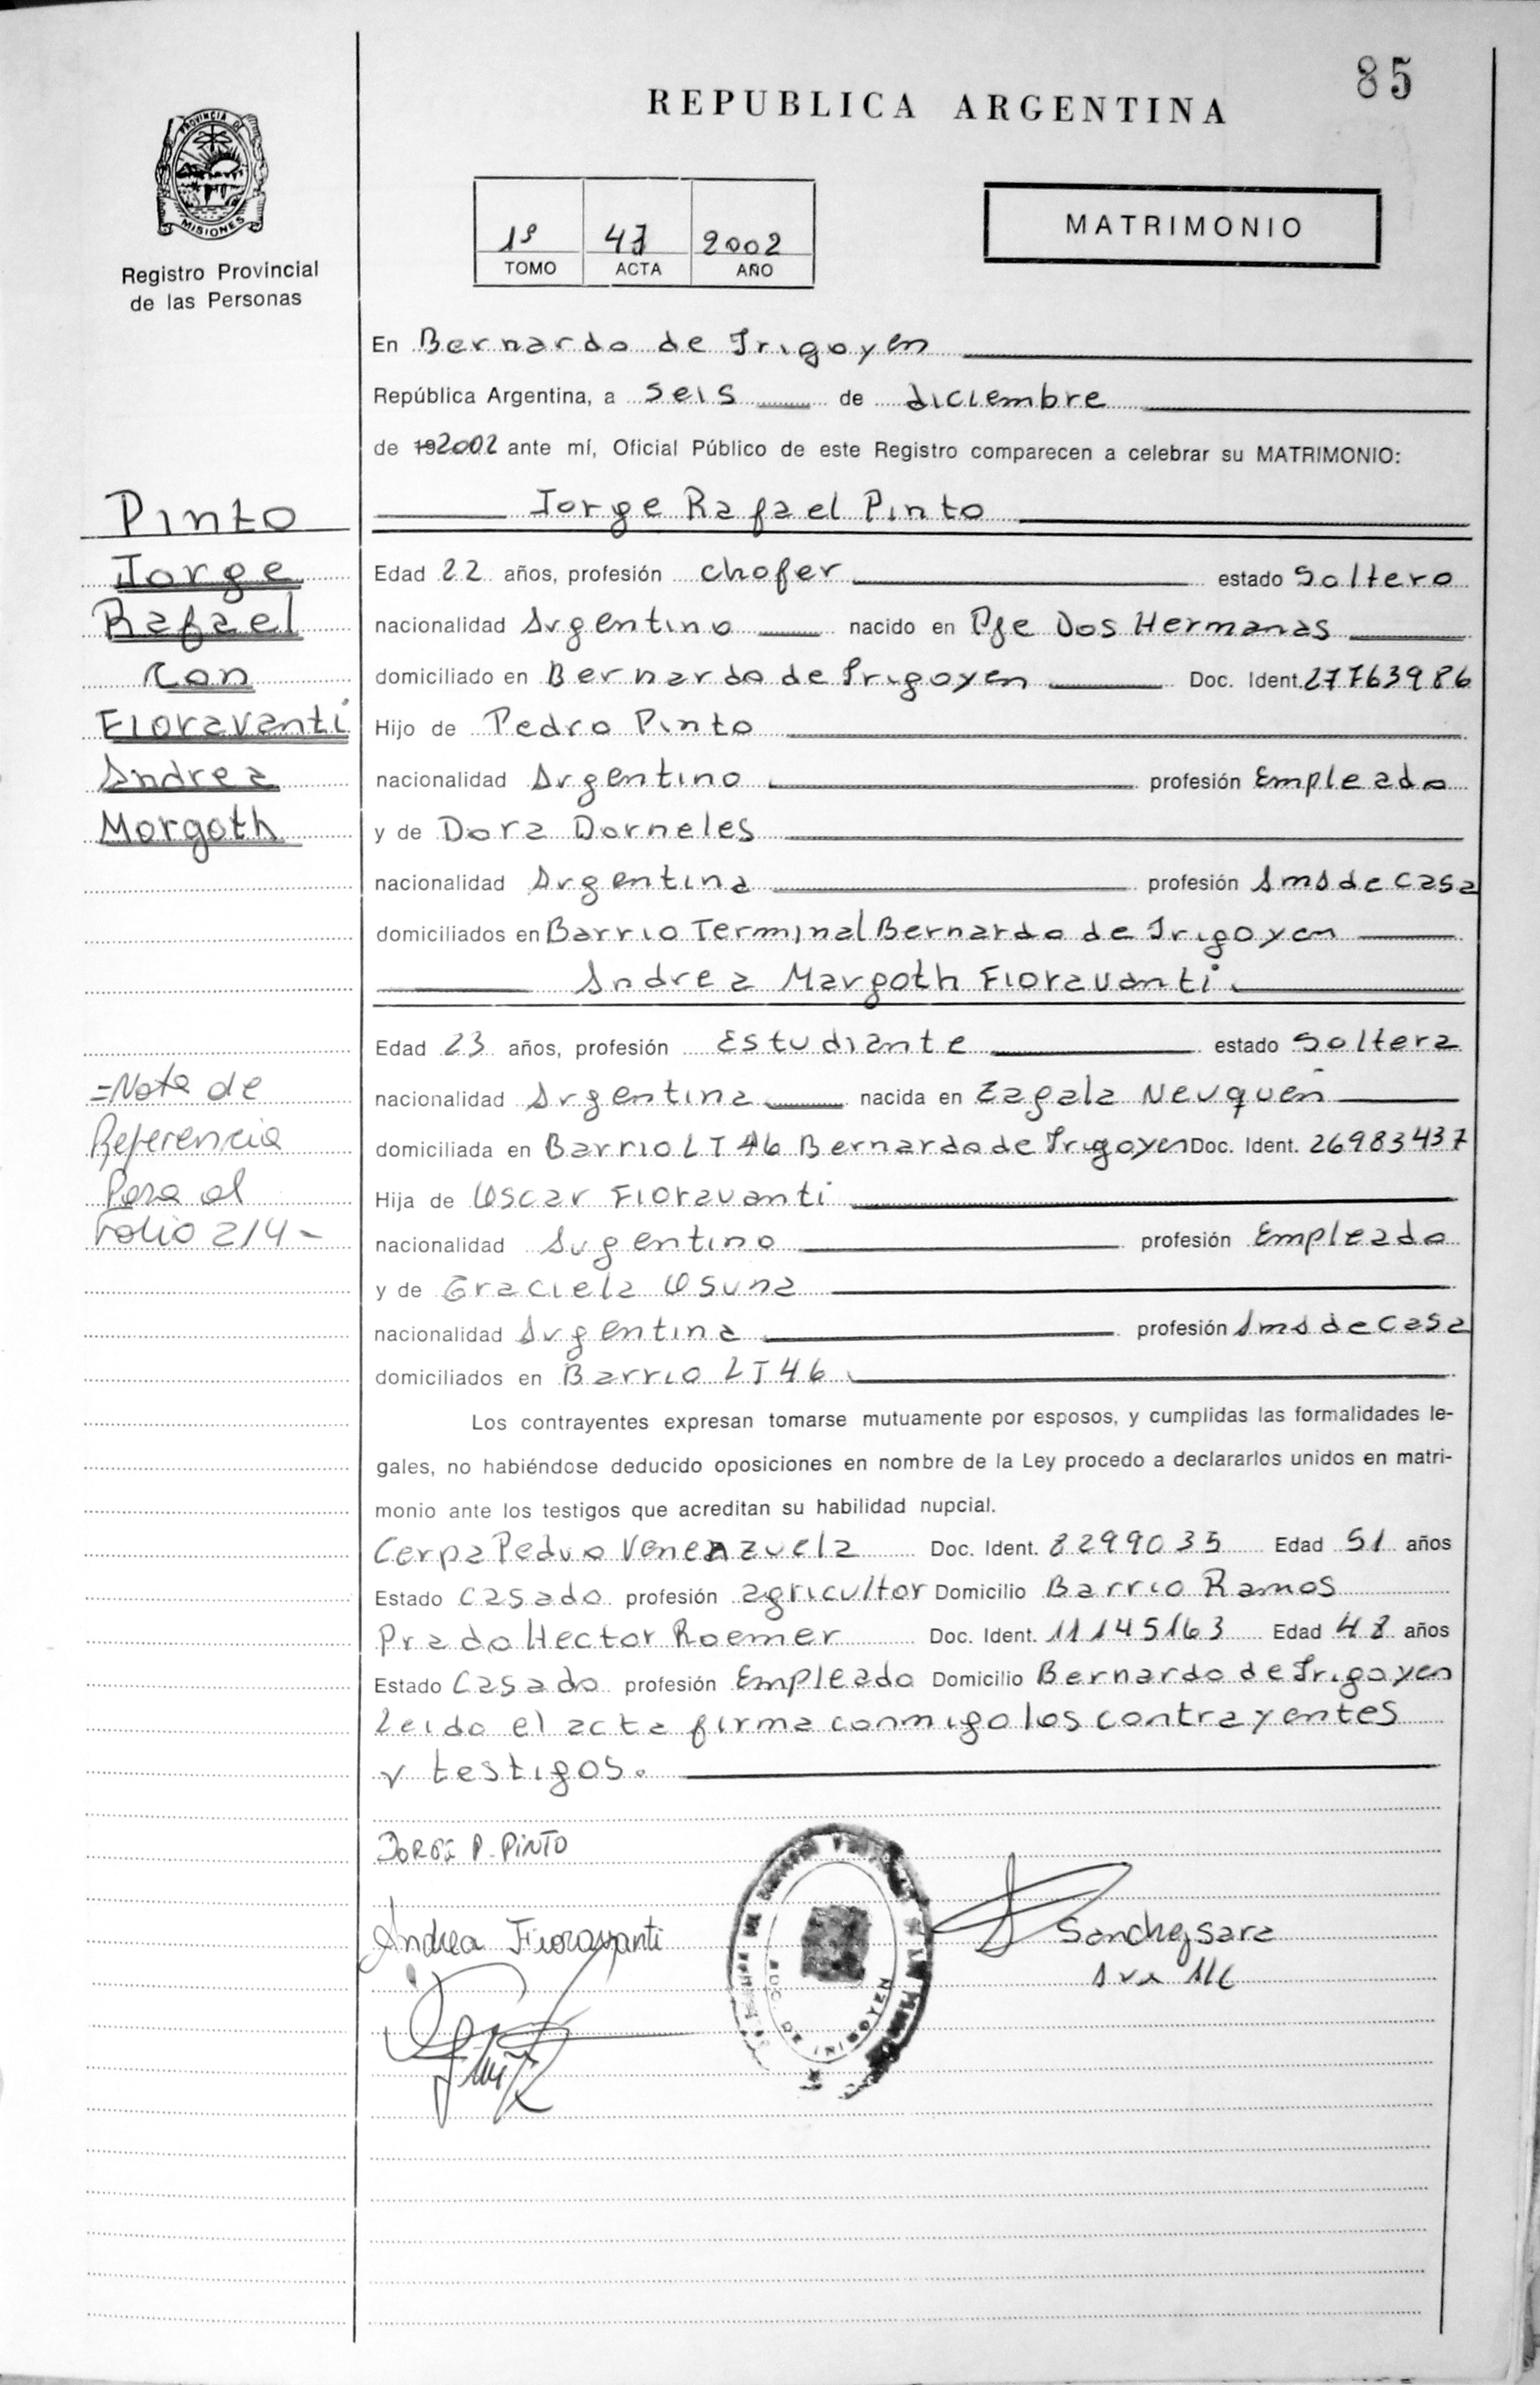 85
REPUBLICA ARGENTINA
PROVINCIA DE
MISIONES
Registro Provincial
de las Personas
1º 47 2002
TOMO ACTA AÑO
MATRIMONIO
En Bernardo de Irigoyen
República Argentina, a seis de diciembre
de 192002 ante mí, Oficial Público de este Registro comparecen a celebrar su MATRIMONIO:
Pinto
Jorge
Rafael
Con
Fioravanti
Andrea
Morgoth
Jorge Rafael Pinto
Edad 22 años, profesión chofer estado Soltero
nacionalidad Argentino nacido en Pje Dos Hermanas
domiciliado en Bernardo de Irigoyen Doc. Ident. 27763986
Hijo de Pedro Pinto
nacionalidad Argentino profesión Empleado
y de Dora Dorneles
nacionalidad Argentina profesión Ama de casa
domiciliados en Barrio Terminal Bernardo de Irigoyen
Andrea Margoth Fioravanti
Edad 23 años, profesión Estudiante estado Soltera
=Nota de
Referencia
Pasa al
Folio 214-
nacionalidad Argentina nacida en Zapala Neuquen
domiciliada en Barrio LT 46 Bernardo de Irigoyen Doc. Ident. 26983437
Hija de Oscar Fioravanti
nacionalidad Argentino profesión Empleado
y de Graciela Osuna
nacionalidad Argentina profesión Ama de casa
domiciliados en Barrio LT 46
Los contrayentes expresan tomarse mutuamente por esposos, y cumplidas las formalidades le-
gales, no habiéndose deducido oposiciones en nombre de la Ley procedo a declararlos unidos en matri-
monio ante los testigos que acreditan su habilidad nupcial.
Cerpa Pedro Venenzuela Doc. Ident. 8299035 Edad 51 años
Estado Casado profesión agricultor Domicilio Barrio Ramos
Prado Hector Roemer Doc. Ident. 11145163 Edad 48 años
Estado Casado profesión Empleado Domicilio Bernardo de Irigoyen
Leido el acta firma conmigo los contrayentes
y testigos.
JORGE R. PINTO
Andrea Fioravanti
Sanchez Sara